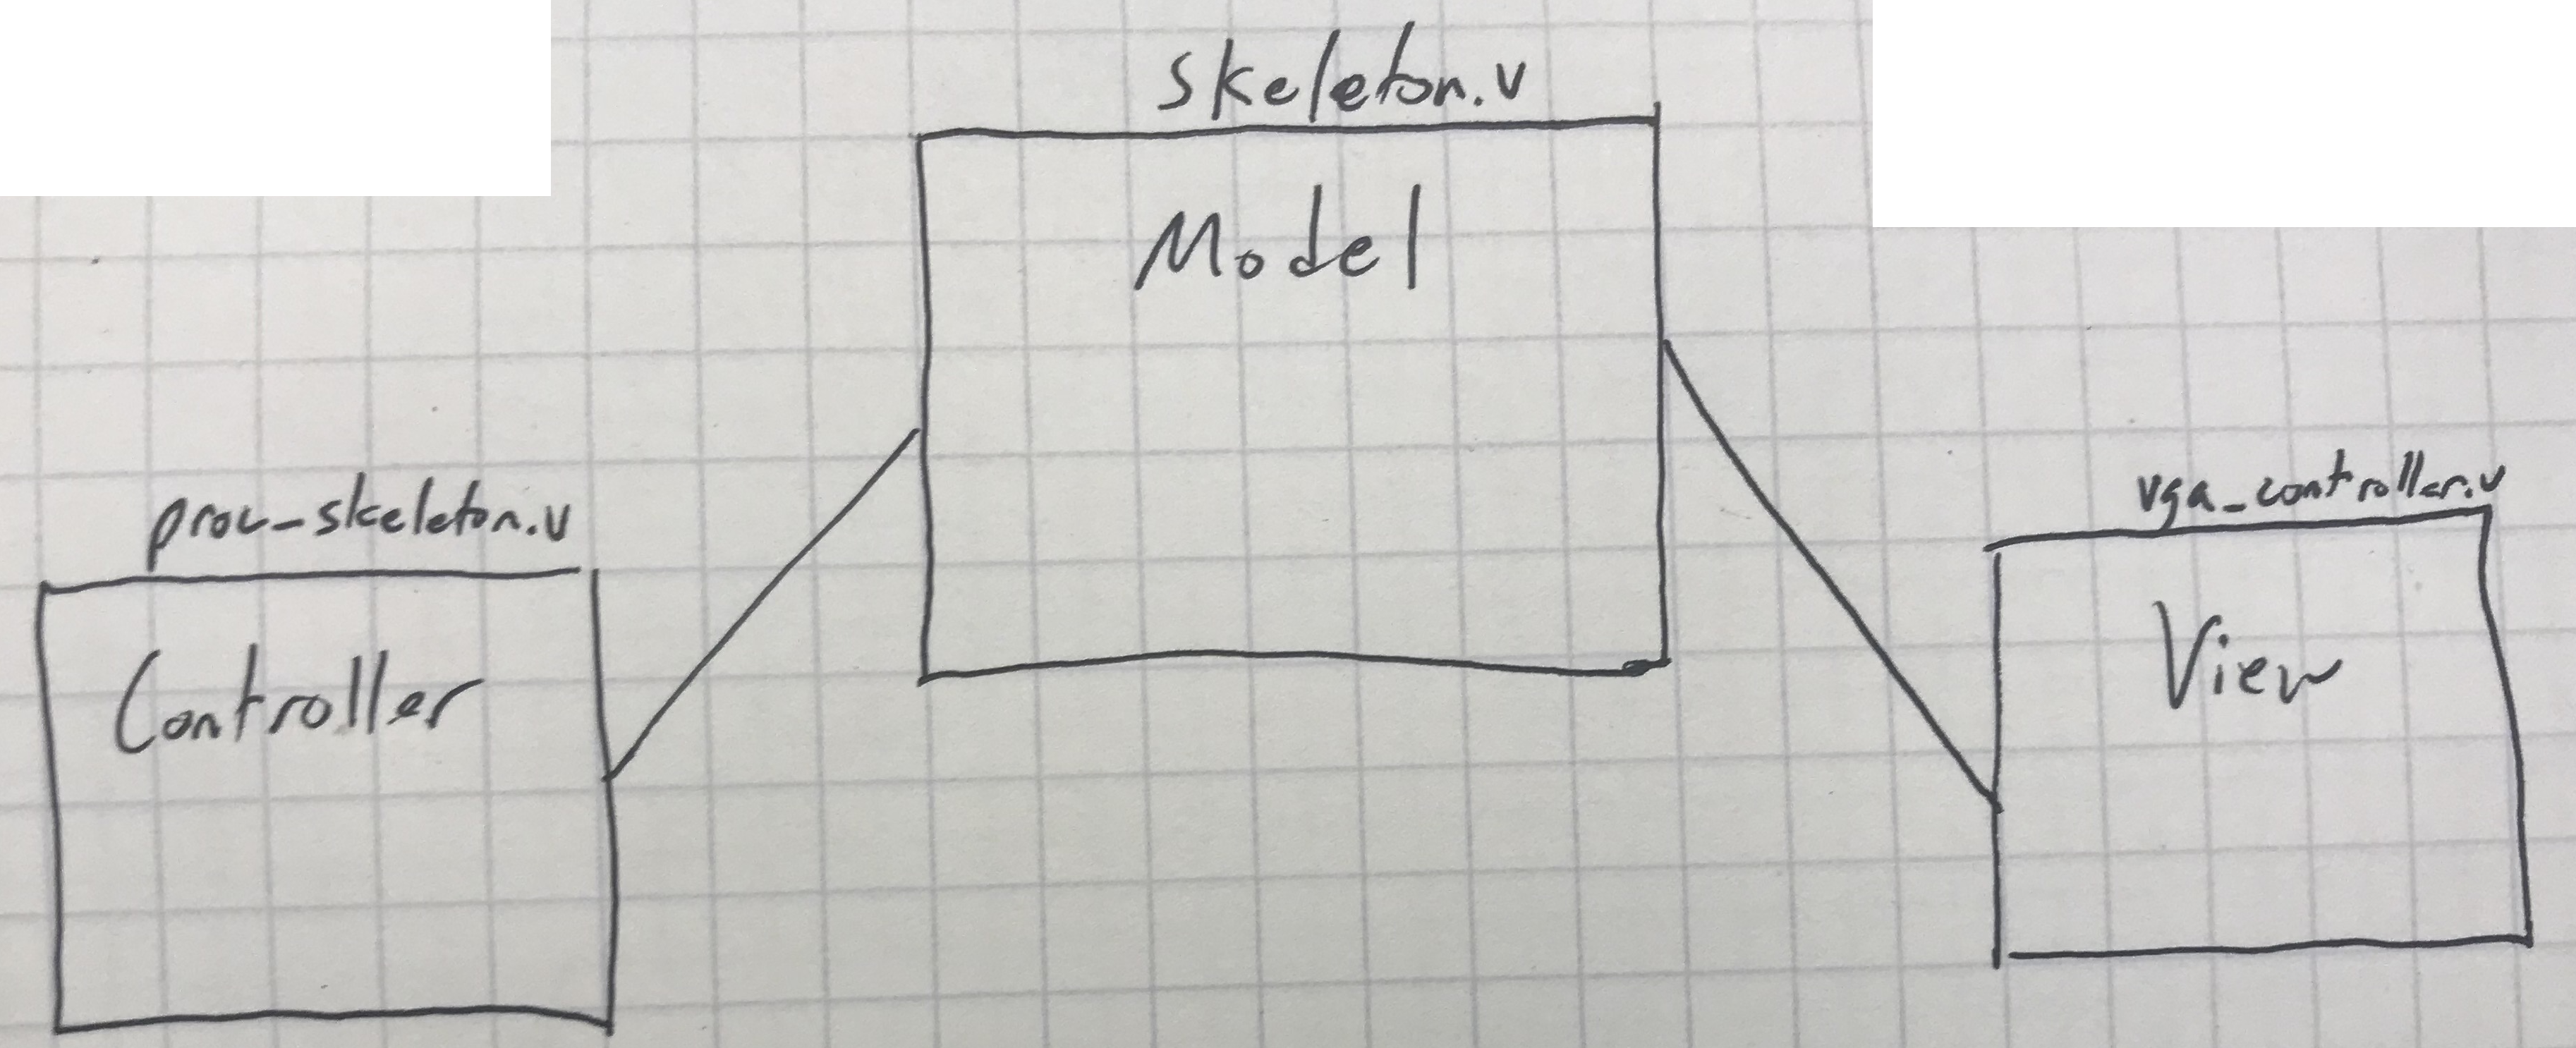 skeleton.v
Model
proc-skeleton.v
Controller
vga_controller.v
View